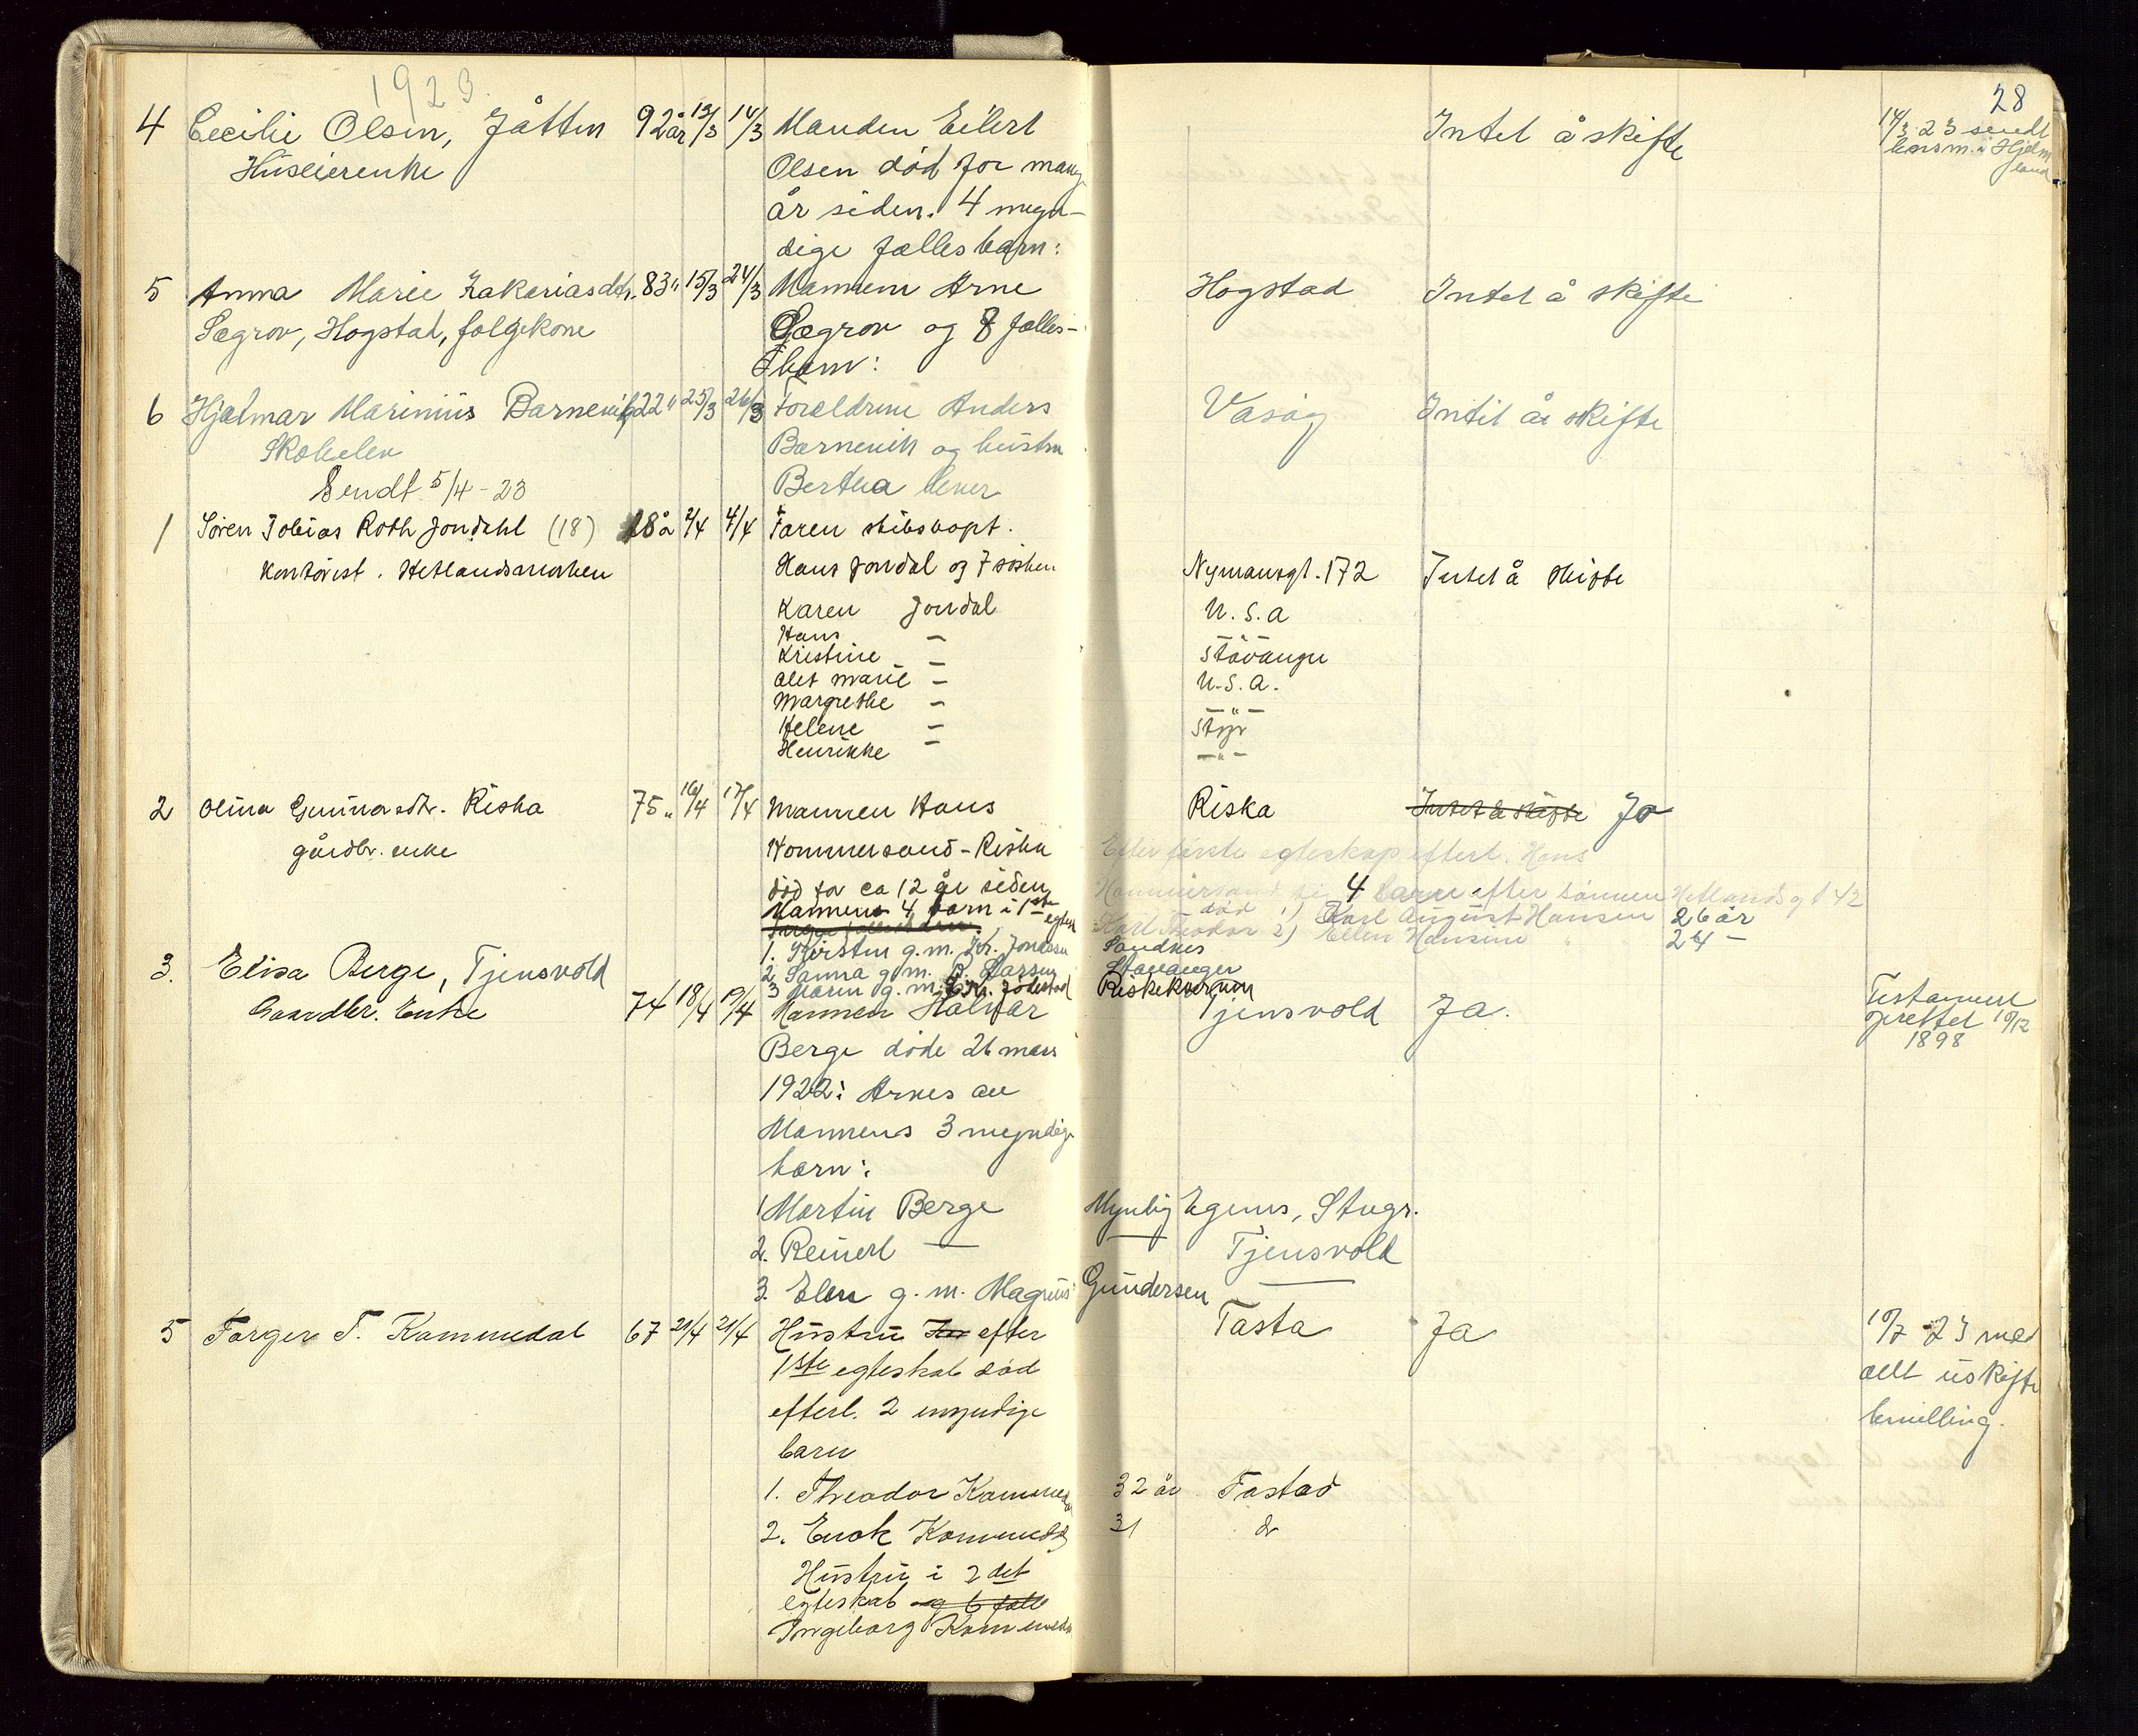 28
1923.
4 Cecilie Olsen, Jåtten 92 år 13/3 14/3 Manden Eilert Intet å skifte 14/3 23 sendt
Huseierenke Olsen død for mang lensm. i Hjelm
land
år siden. 4 myn-
dige fælles barn:
5 Anna Marie Zakariasdtr. 83 " 15/3 24/3 Mannen Arne Hogstad Intet å skifte
Søgrov, Hogstad, folgekone Søgrov og 8 fælles-
barn:
6 Hjalmar Marinius Barnevik 22 " 25/3 26/3 Foreldrene Anders Vasøg Intet å skifte
Skoleelev Barnevik og hustru
Sendt 5/4-23 Bertha lever
1 Søren Tobias Roth Jondahl (18) 18 å 2/4 4/4 Faren skibskapt.
Kontorist. Hetlandsmarken Hans Jondal og 7 søsken Nymansgt. 172 Intet å skifte
Karen Jondal U.S.A
Hans — — " —
Kristine — Stavanger
Alet Marie — U.S.A.
Margrethe — — " —
Helene — Stvgr
Henrikke — — " —
2 Olina Gunnarsdtr. Riska 75 " 16/4 17/4 Mannen Hans Riska Intet å skifte Ja
gårdbr. enke Hommersand-Riska Efter første egteskap efterl. Hans
død for ca 12 år siden Hommersand 4 barn efter sønnen Hetlandsgt 42
Mannens 4 barn i 1ste egtesk Karl Theodor død 1) Karl August Hansen 26 år
2) Ellen Hansine " 24 —
1. Kirsten g.m. Joh. Jonassen Sandnes
2 Sanna g.m. P. Larsen Stavanger
3 Maren g.m. Riskekvernen
3. Elisa Berge, Tjensvold 74 18/4 19/4 Mannen Halvar Tjensvold Ja. Testament
Gaardbr. Enke oprettet 10/12
1898
Berge døde 26 mars
1922: Arves av
Mannens 3 myndige
barn:
1 Martin Berge Myndig Egenes, Stvgr.
2. Reinert — — Tjensvold
3. Elen g.m. Magnus Gundersen —
5 Torger T. Kommedal 67 21/4 21/4 Hustru efter Tasta Ja 10/7 - 23 med
1ste egteskab død delt uskifte
efterl. 2 myndige bevilling.
barn
1. Theodor Kommedal 32 år Tastad
2. Enok Kommedal 31 do
Hustru i 2det
egteskab og 6 fælle
Ingeborg Kommedal